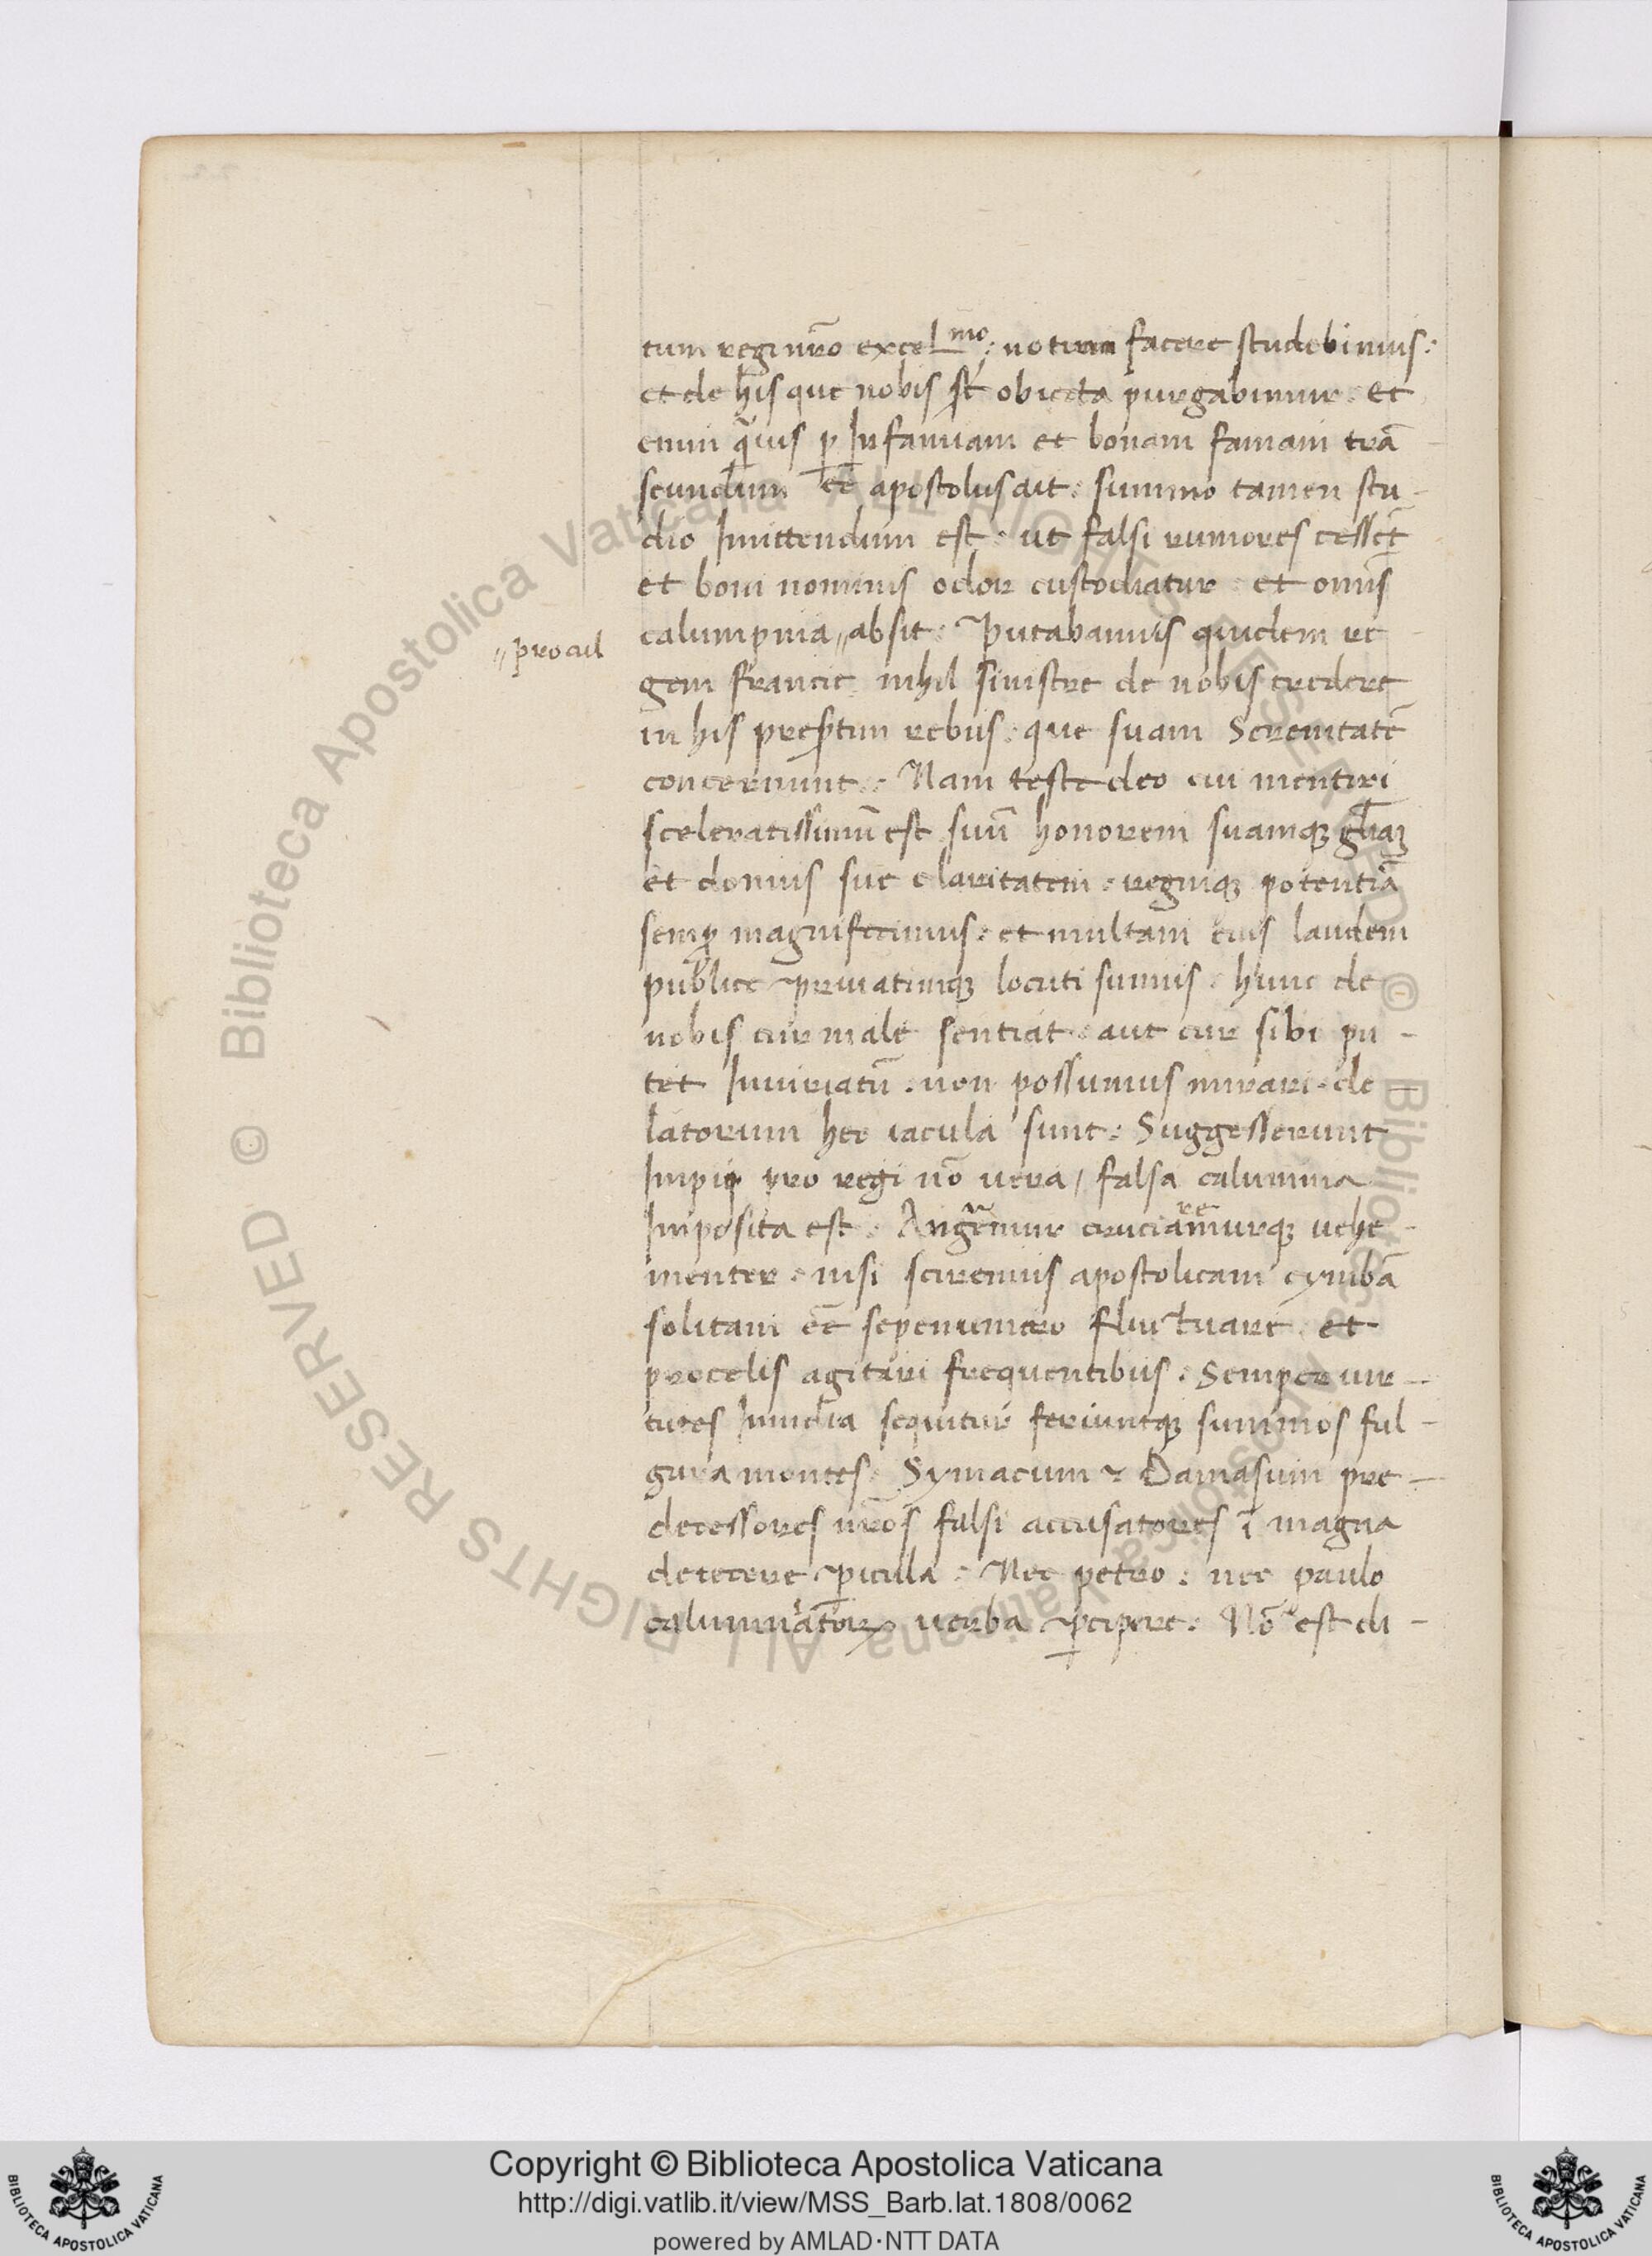 tum regi nr̄o excelᵐᵒ: notum facere studebimus:
et de his que nobis st̄ obiecta purgabimur. et
enim q̄uis ꝑ Infamiam et bonam famam trā
seundum ec̄ apostolus ait: summo tamen stu-
dio Innittendum est: ut falsi rumores cessēt
et boni nominis odor custodiatur et omīs
calumpnia〃absit: Putabamus quidem re-
〃procul
gem francie nihil sinistre de nobis credere
in his pres̄tim rebus: que suam Serenitatē
concernunt: Nam teste deo cui mentiri
sceleratissimū est suū honorem suamqꝫ gl̄iaꝫ
et domus sue claritatem: regniqꝫ potentiā
semꝑ magnifecimus: et multam eius laudem
publice priuatimqꝫ locuti sumus. hunc de
nobis cur male sentiat: aut cur sibi pu-
tet Iniuriatū. non possumus mirari. de-
latorum hec iacula sunt: Suggesserunt
Impij pro regi nō uera, falsa calumnia
Imposita est: Angeremur cruciaremurqꝫ uehe-
menter: nisi sciremus apostolicam cymbā
solitam ēe sepenumero fluctuare et
procelis agitari frequentibus: Semper uir-
tutes Inuidia sequitur feriuntqꝫ summos ful-
gura montes: Symacum & Damasum pre-
decessores nr̄os falsi accusatores ī magna
deiecere ꝑicula: Nec petro: nec paulo
calumniatoꝝ uerba ꝑcipere: Nō est di-
Copyright © Biblioteca Apostolica Vaticana
http://digi.vatlib.it/view/MSS_Barb.lat.1808/0062
powered by AMLAD·NTT DATA
BIBLIOTECA APOSTOLICA VATICANA
BIBLIOTECA APOSTOLICA VATICANA
© Biblioteca Apostolica Vaticana ALL RIGHTS RESERVED
© Biblioteca Apostolica Vaticana ALL RIGHTS RESERVED